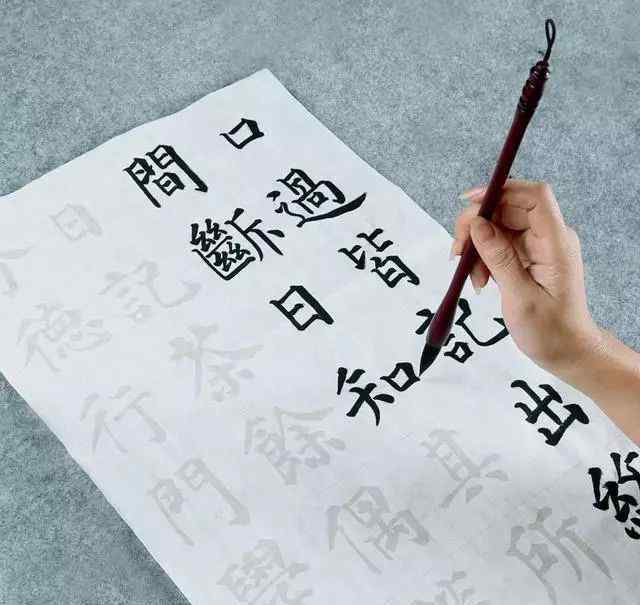 口過皆記出
間斷日知其所
日記茶餘偶
德行門學